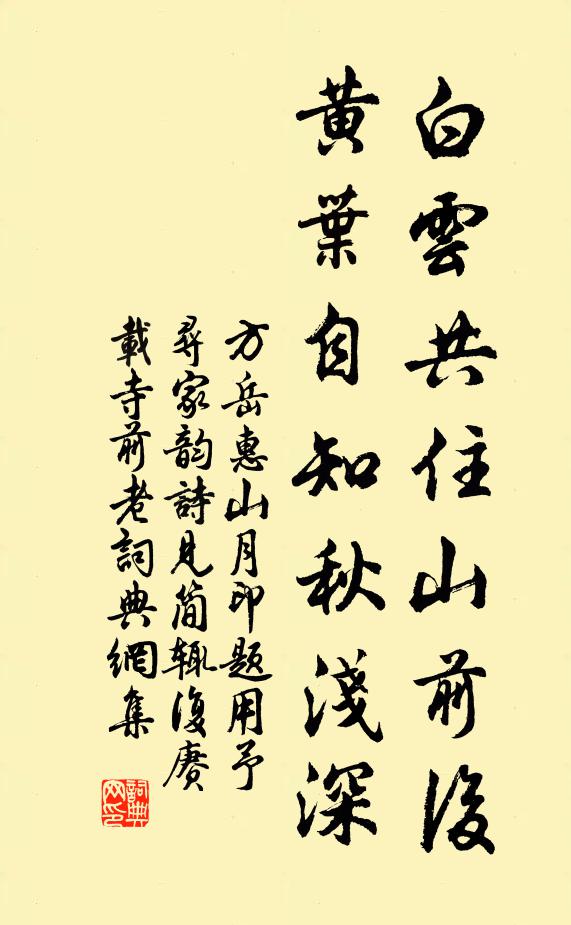 白雲共住山前後
黃葉自知秋淺深
方岳惠山月印題用予
尋家韵詩見简輒復賡
載寺前老詞典網集
詞典
网印